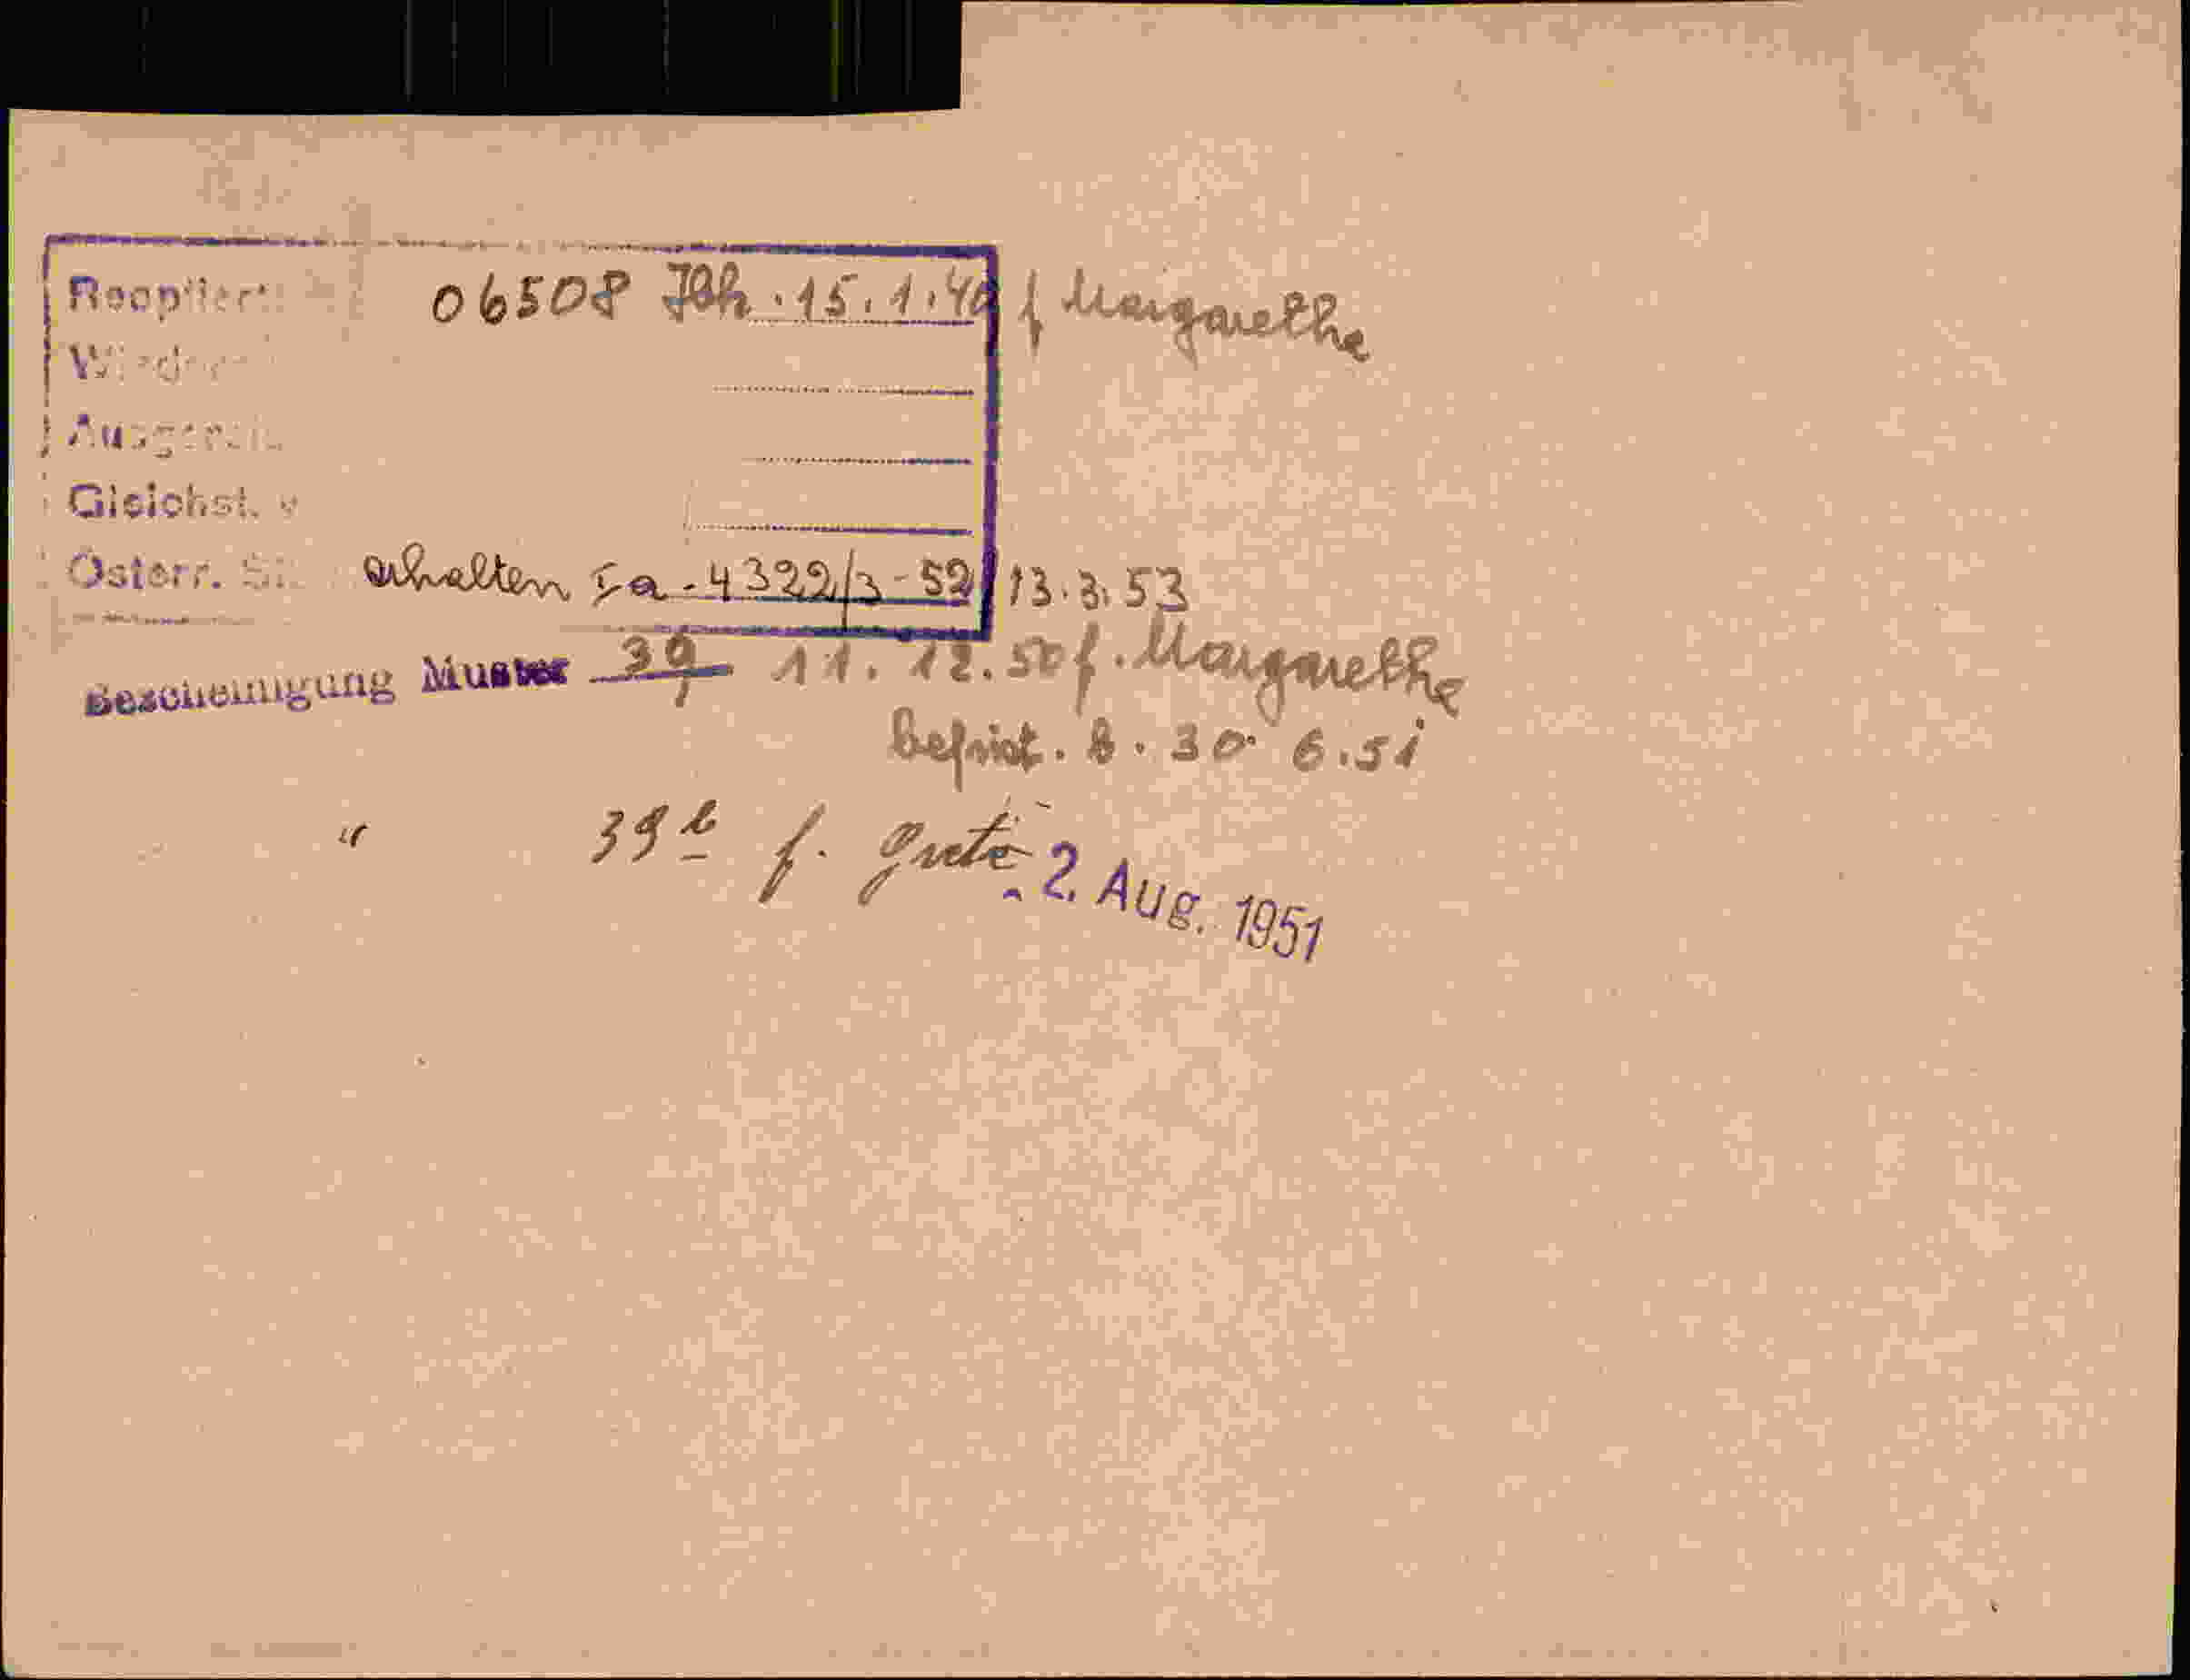 Reoptiert 06508 Jbh. 15.1.40 f Margarethe
Gleichst.
Österr. St. erhalten Ia-4322/3-52 13.3.53
Bescheinigung Muster 39 11.12.50 f. Margarethe
befrist. b. 30. 6.51
" 39b f. Grete - 2. Aug. 1951